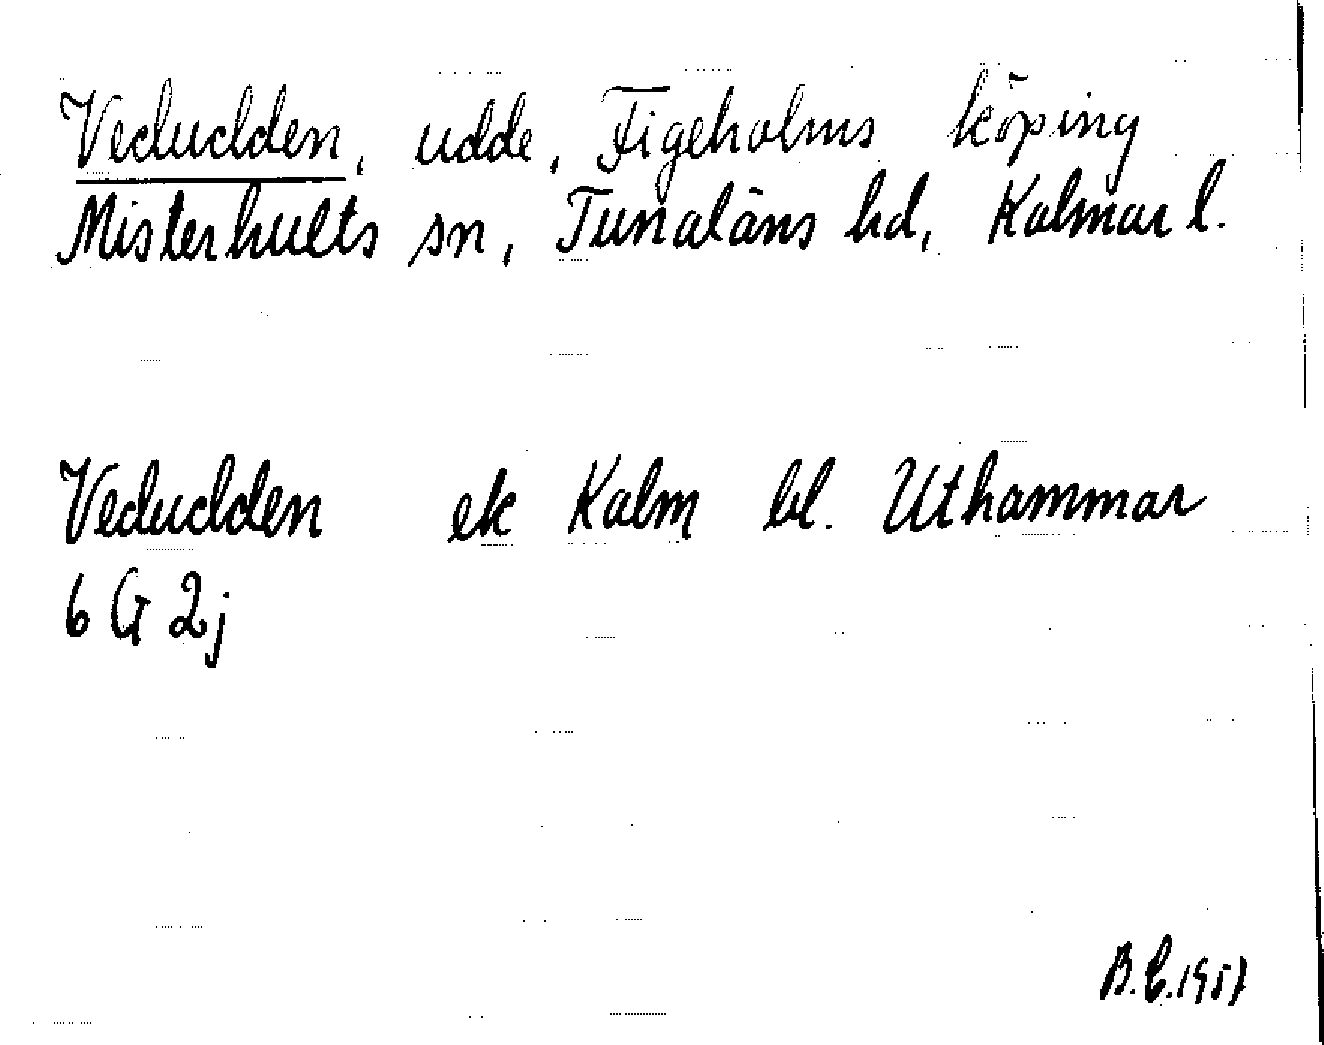 Vedudden, udde, Figeholms köping
Misterhults sn, Tunaläns hd, Kalmar l.
Vedudden ek Kalm bl. Uthammar
6 G 2j
B.C. 1957